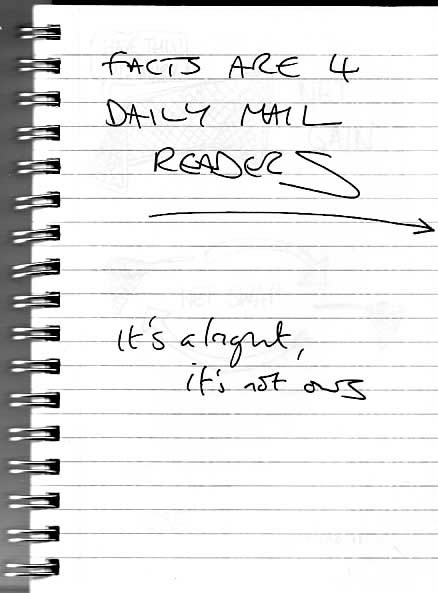 FACTS ARE 4
DAILY MAIL
READERS
it's alright,
it's not ours